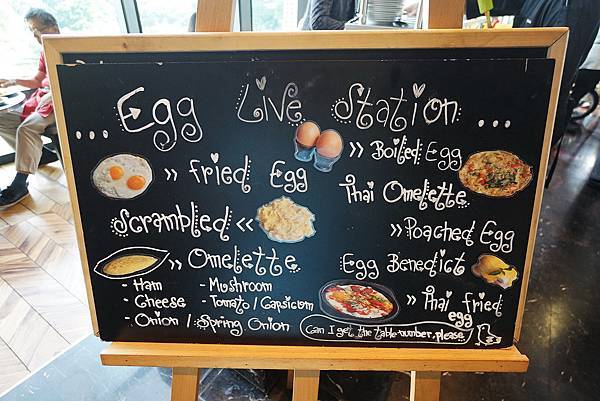 ... Egg Live Station ...
>> Fried Egg
Scrambled <<
>> Omelette
- Ham
- Cheese
- Onion / Spring Onion
- Mushroom
- Tomato / Capsicum
>> Boiled Egg
Thai Omelette
>> Poached Egg
Egg Benedict
>> Thai fried
egg
Can I get the table number, please